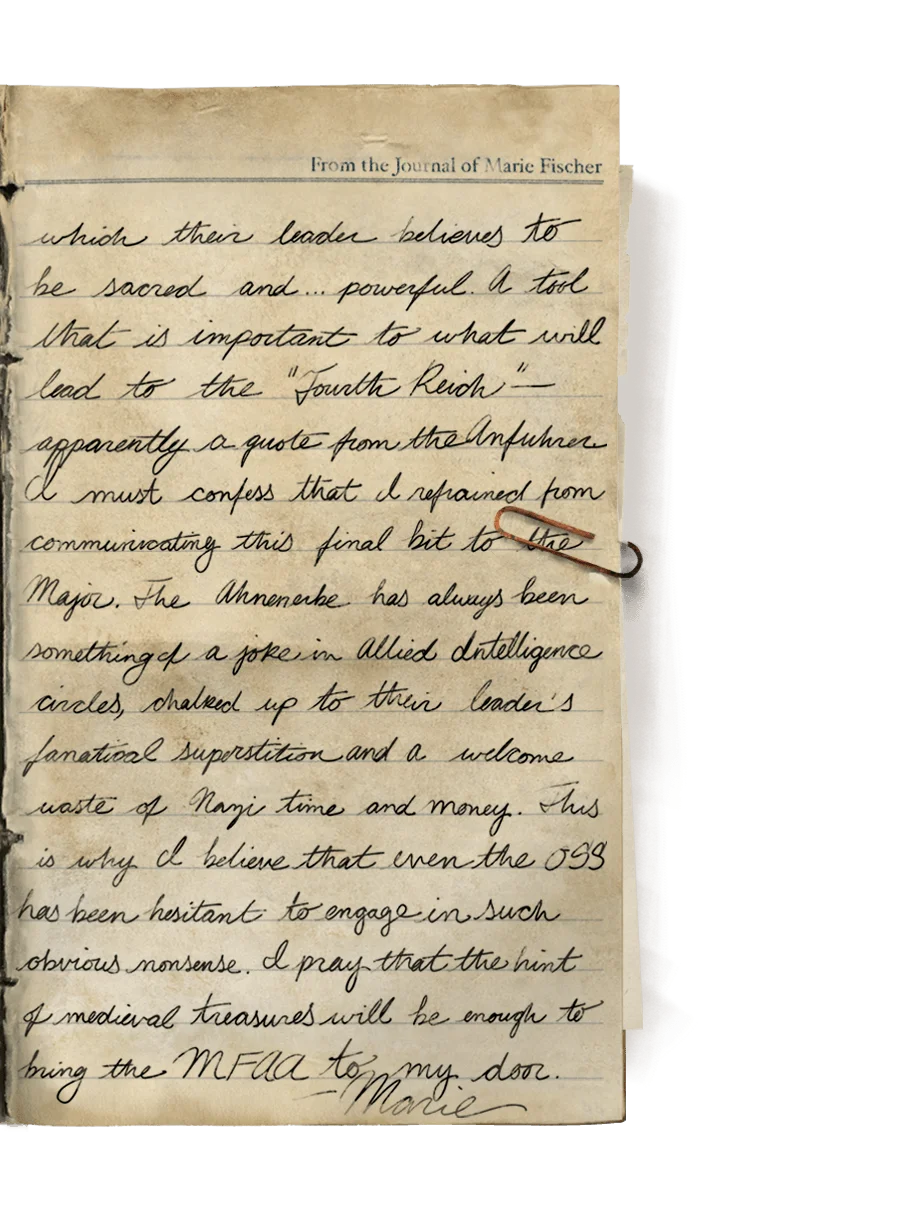 From the Journal of Marie Fischer
which their leader believes to
be sacred and... powerful. A tool
that is important to what will
lead to the "Fourth Reich"—
apparently a quote from the Anfuhrer
I must confess that I refrained from
communicating this final bit to the
Major. The Ahnenerbe has always been
something of a joke in Allied Intelligence
circles, chalked up to their leader's
fanatical superstition and a welcome
waste of Nazi time and money. This
is why I believe that even the OSS
has been hesitant to engage in such
obvious nonsense. I pray that the hint
of medieval treasures will be enough to
bring the MFAA to my door.
—Marie